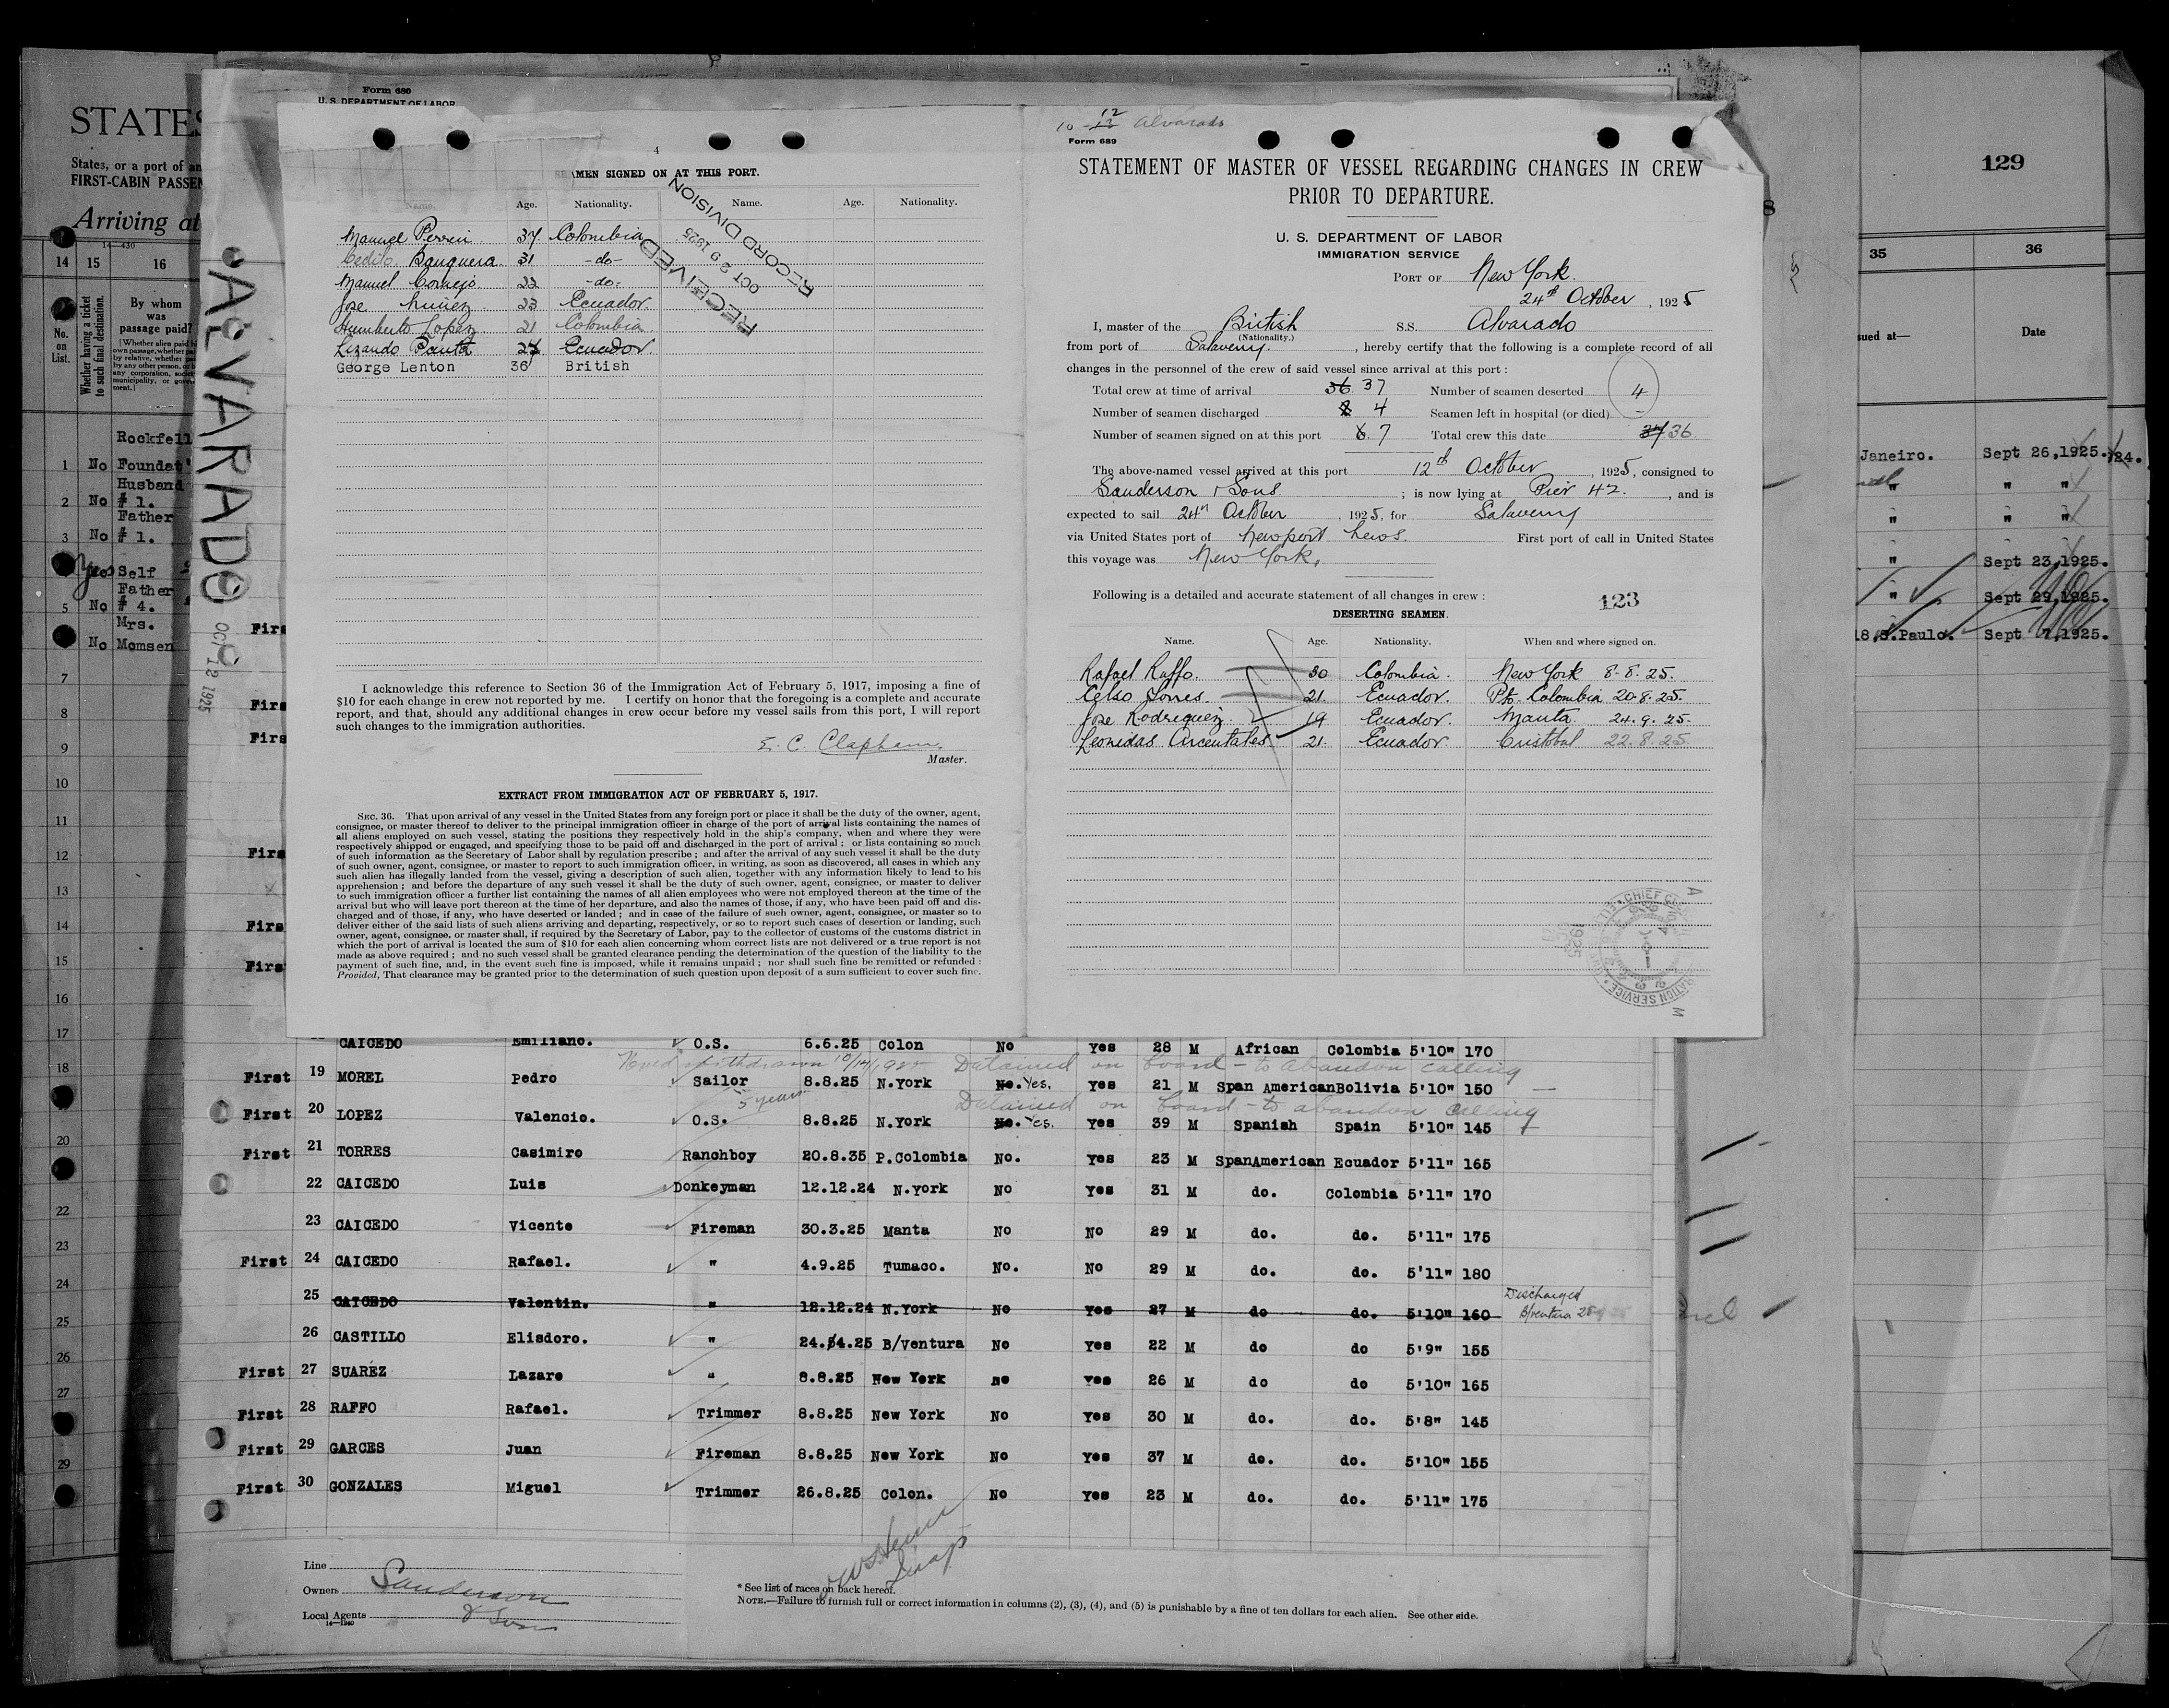 STATES
States, or a port of an
FIRST-CABIN PASSEN
Arriving at
14-430
14 15 16
No. on List.
Whether having a ticket to such final destination.
By whom was passage paid?
Rockfell
1 No Foundat
Husband
2 No # 1.
Father
3 No # 1.
Yes Self
Father
5 No # 4.
Mrs.
No Momsen
7
8
9
10
11
12
13
14
15
16
17
18
20
22
23
24
25
26
27
29
ALVARADO
OCT 12 1925
Form 680
U. S. DEPARTMENT OF LABOR
4
SEAMEN SIGNED ON AT THIS PORT.
Name. Age. Nationality. Name. Age. Nationality.
Manuel Perrin 37 Colombia
Cedito Banguera 31 -do-
Manuel Cornejo 22 -do-
Jose Nunez 23 Ecuador.
Humberto Lopez 21 Colombia
Lizando Panta 24 Ecuador.
George Lenton 36 British
RECEIVED
OCT 29 1925
RECORD DIVISION
I acknowledge this reference to Section 36 of the Immigration Act of February 5, 1917, imposing a fine of
$10 for each change in crew not reported by me. I certify on honor that the foregoing is a complete and accurate
report, and that, should any additional changes in crew occur before my vessel sails from this port, I will report
such changes to the immigration authorities.
E. C. Clapham
Master.
EXTRACT FROM IMMIGRATION ACT OF FEBRUARY 5, 1917.
SEC. 36. That upon arrival of any vessel in the United States from any foreign port or place it shall be the duty of the owner, agent,
consignee, or master thereof to deliver to the principal immigration officer in charge of the port of arrival lists containing the names of
all aliens employed on such vessel, stating the positions they respectively hold in the ship's company, when and where they were
respectively shipped or engaged, and specifying those to be paid off and discharged in the port of arrival; or lists containing so much
of such information as the Secretary of Labor shall by regulation prescribe; and after the arrival of any such vessel it shall be the duty
of such owner, agent, consignee, or master to report to such immigration officer, in writing, as soon as discovered, all cases in which any
such alien has illegally landed from the vessel, giving a description of such alien, together with any information likely to lead to his
apprehension; and before the departure of any such vessel it shall be the duty of such owner, agent, consignee, or master to deliver
to such immigration officer a further list containing the names of all alien employees who were not employed thereon at the time of the
arrival but who will leave port thereon at the time of her departure, and also the names of those, if any, who have been paid off and dis-
charged and of those, if any, who have deserted or landed; and in case of the failure of such owner, agent, consignee, or master so to
deliver either of the said lists of such aliens arriving and departing, respectively, or so to report such cases of desertion or landing, such
owner, agent, consignee, or master shall, if required by the Secretary of Labor, pay to the collector of customs of the customs district in
which the port of arrival is located the sum of $10 for each alien concerning whom correct lists are not delivered or a true report is not
made as above required; and no such vessel shall be granted clearance pending the determination of the question of the liability to the
payment of such fine, and, in the event such fine is imposed, while it remains unpaid; nor shall such fine be remitted or refunded:
Provided, That clearance may be granted prior to the determination of such question upon deposit of a sum sufficient to cover such fine.
10-12 13 Alvarado
Form 689
STATEMENT OF MASTER OF VESSEL REGARDING CHANGES IN CREW
PRIOR TO DEPARTURE.
U. S. DEPARTMENT OF LABOR
IMMIGRATION SERVICE
PORT OF New York.
24th October, 1925
I, master of the British S.S. Alvarado
(Nationality.)
from port of Salaverry., hereby certify that the following is a complete record of all
changes in the personnel of the crew of said vessel since arrival at this port:
Total crew at time of arrival 36 37 Number of seamen deserted 4
Number of seamen discharged 8 4 Seamen left in hospital (or died) -
Number of seamen signed on at this port 6 7 Total crew this date 37 36
The above-named vessel arrived at this port 12th October, 1925, consigned to
Sanderson & Sons; is now lying at Pier 42., and is
expected to sail 24th October, 1925, for Salaverry
via United States port of Newport News. First port of call in United States
this voyage was New York.
Following is a detailed and accurate statement of all changes in crew:
123
DESERTING SEAMEN.
Name. Age. Nationality. When and where signed on.
Rafael Raffo. 30 Colombia. New York 8-8-25.
Celso Torres 21. Ecuador. Pto. Colombia 20-8-25.
Jose Rodreguez 19 Ecuador. Manta 24.9.25.
Leonidas Arcentales 21. Ecuador. Cristobal 22.8.25
CHIEF
1925
IMMIGRATION SERVICE
129
35 36
sued at— Date
Janeiro. Sept 26,1925. 24.
" " "
" " "
" Sept 23,1925.
" Sept 29,1925.
18,S.Paulo. Sept 7,1925.
Firs
Firs
Firs
Firs
Firs
Firs
CAICEDO Emiliano. O.S. 6.6.25 Colon No Yes 28 M African Colombia 5'10" 170
withdrawn 10/14/1925 Detained on board - to abandon calling
First 19 MOREL Pedro Sailor 8.8.25 N.York No. Yes. Yes 21 M Span American Bolivia 5'10" 150
5 years Detained on board - to abandon calling
First 20 LOPEZ Valencio. O.S. 8.8.25 N.York No. Yes. Yes 39 M Spanish Spain 5'10" 145
First 21 TORRES Casimiro Ranchboy 20.8.35 P.Colombia No. Yes 23 M SpanAmerican Ecuador 5'11" 165
22 CAICEDO Luis Donkeyman 12.12.24 N.York No Yes 31 M do. Colombia 5'11" 170
23 CAICEDO Vicente Fireman 30.3.25 Manta No No 29 M do. do. 5'11" 175
First 24 CAICEDO Rafael. " 4.9.25 Tumaco. No. No 29 M do. do. 5'11" 180
25 CAICEDO Valentin. " 12.12.24 N.York No Yes 27 M do do. 5'10" 160 Discharged
B/ventura 25
26 CASTILLO Elisdoro. " 24.54.25 B/Ventura No Yes 22 M do do 5'9" 155
First 27 SUAREZ Lazaro " 8.8.25 New York no yes 26 M do do 5'10" 165
First 28 RAFFO Rafael. Trimmer 8.8.25 New York No Yes 30 M do. do. 5'8" 145
First 29 GARCES Juan Fireman 8.8.25 New York No Yes 37 M do. do. 5'10" 155
First 30 GONZALES Miguel Trimmer 26.8.25 Colon. No Yes 23 M do. do. 5'11" 175
Line
Owners Sanderson
Local Agents & Son
14-1240
Insp
* See list of races on back hereof.
NOTE.—Failure to furnish full or correct information in columns (2), (3), (4), and (5) is punishable by a fine of ten dollars for each alien. See other side.